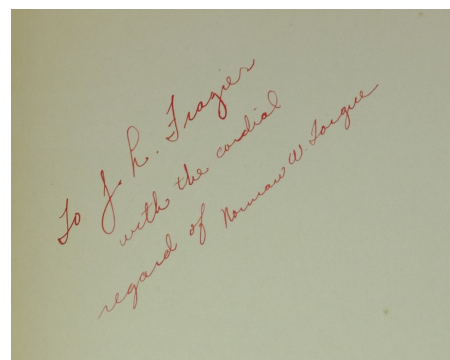 To J. L. Frazier
with the cordial
regard of Norman W. Forgue